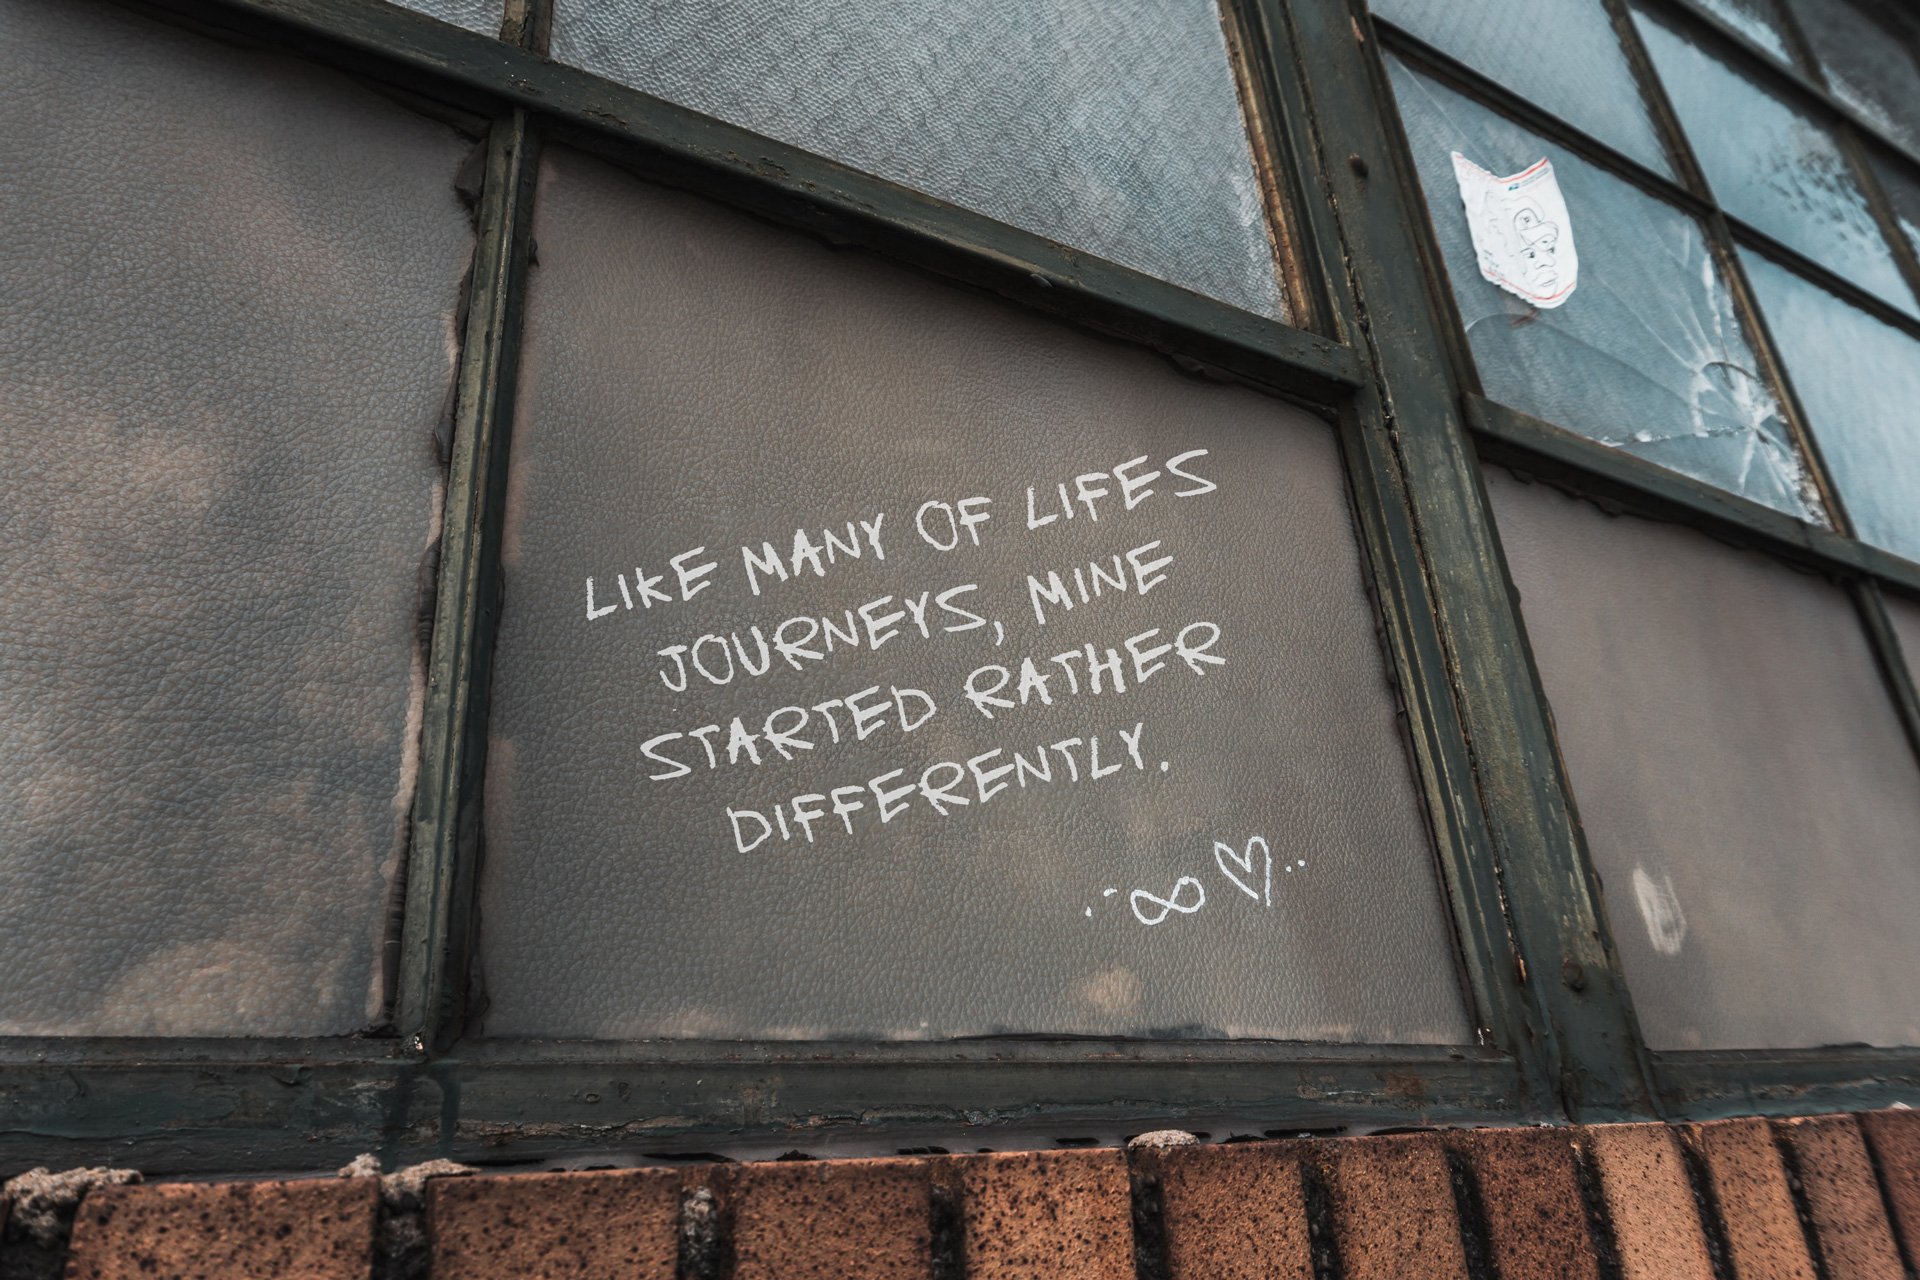 LIKE MANY OF LIFES
JOURNEYS, MINE
STARTED RATHER
DIFFERENTLY.